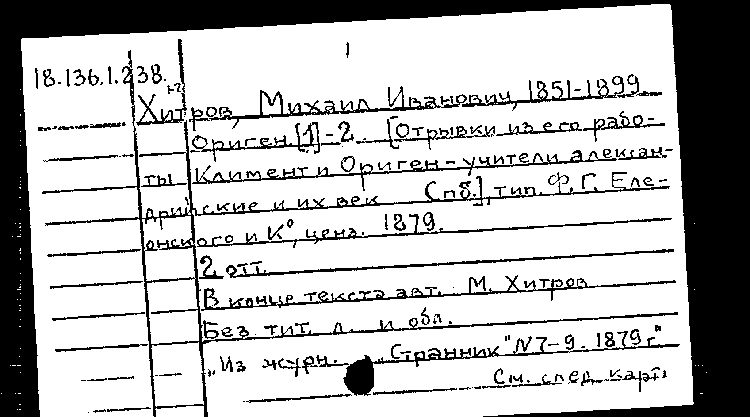 1
18.136.1.238.
+2
Хитров, Михаил Иванович, 1851-1899.
Ориген [1]-2. [Отрывки из его рабо-
ты Климент и Ориген - учители алексан-
дрийские и их век Спб.], тип. Ф. Г. Еле-
онского и К°, ценз. 1879.
2 отт.
В конце текста авт.: М. Хитров
Без тит. л. и обл.
„Из журн. „Странник" N 7-9. 1879 г."
См. след. карт.